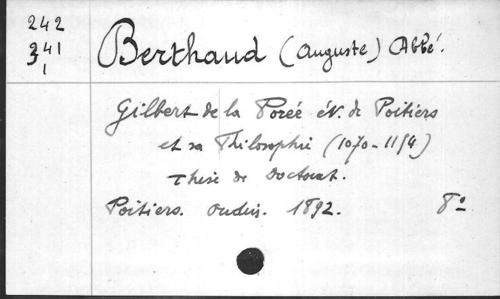 242
241
1
Berthaud (Auguste) Abbé.
Gilbert de la Porée év. de Poitiers
et sa Philosophie (1070-1154)
Thèse de Doctorat.
Poitiers. Oudin. 1892. 8°